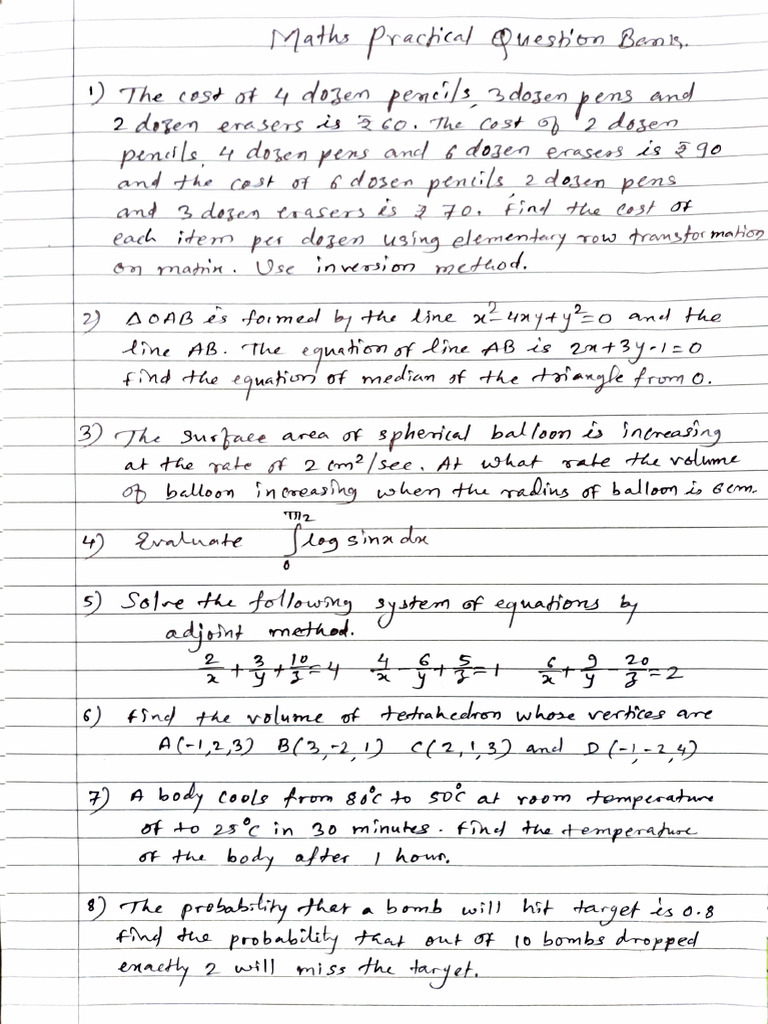 Maths Practical Question Bank.
1) The cost of 4 dozen pencils, 3 dozen pens and
2 dozen erasers is ₹ 60. The cost of 2 dozen
pencils, 4 dozen pens and 6 dozen erasers is ₹ 90
and the cost of 6 dozen pencils, 2 dozen pens
and 3 dozen erasers is ₹ 70. Find the cost of
each item per dozen using elementary row transformation
on matrix. Use inversion method.
2) △OAB is formed by the line x²-4xy+y²=0 and the
line AB. The equation of line AB is 2x+3y-1=0
find the equation of median of the triangle from O.
3) The surface area of spherical balloon is increasing
at the rate of 2 cm²/sec. At what rate the volume
of balloon increasing when the radius of balloon is 6cm.
4) Evaluate ∫₀^π/2 log sinx dx
5) Solve the following system of equations by
adjoint method.
2/x + 3/y + 10/z = 4 4/x - 6/y + 5/z = 1 6/x + 9/y - 20/z = 2
6) find the volume of tetrahedron whose vertices are
A(-1,2,3) B(3,-2,1) C(2,1,3) and D(-1,-2,4)
7) A body cools from 80°c to 50°c at room temperature
of to 25°c in 30 minutes. find the temperature
of the body after 1 hour.
8) The probability that a bomb will hit target is 0.8
find the probability that out of 10 bombs dropped
exactly 2 will miss the target.